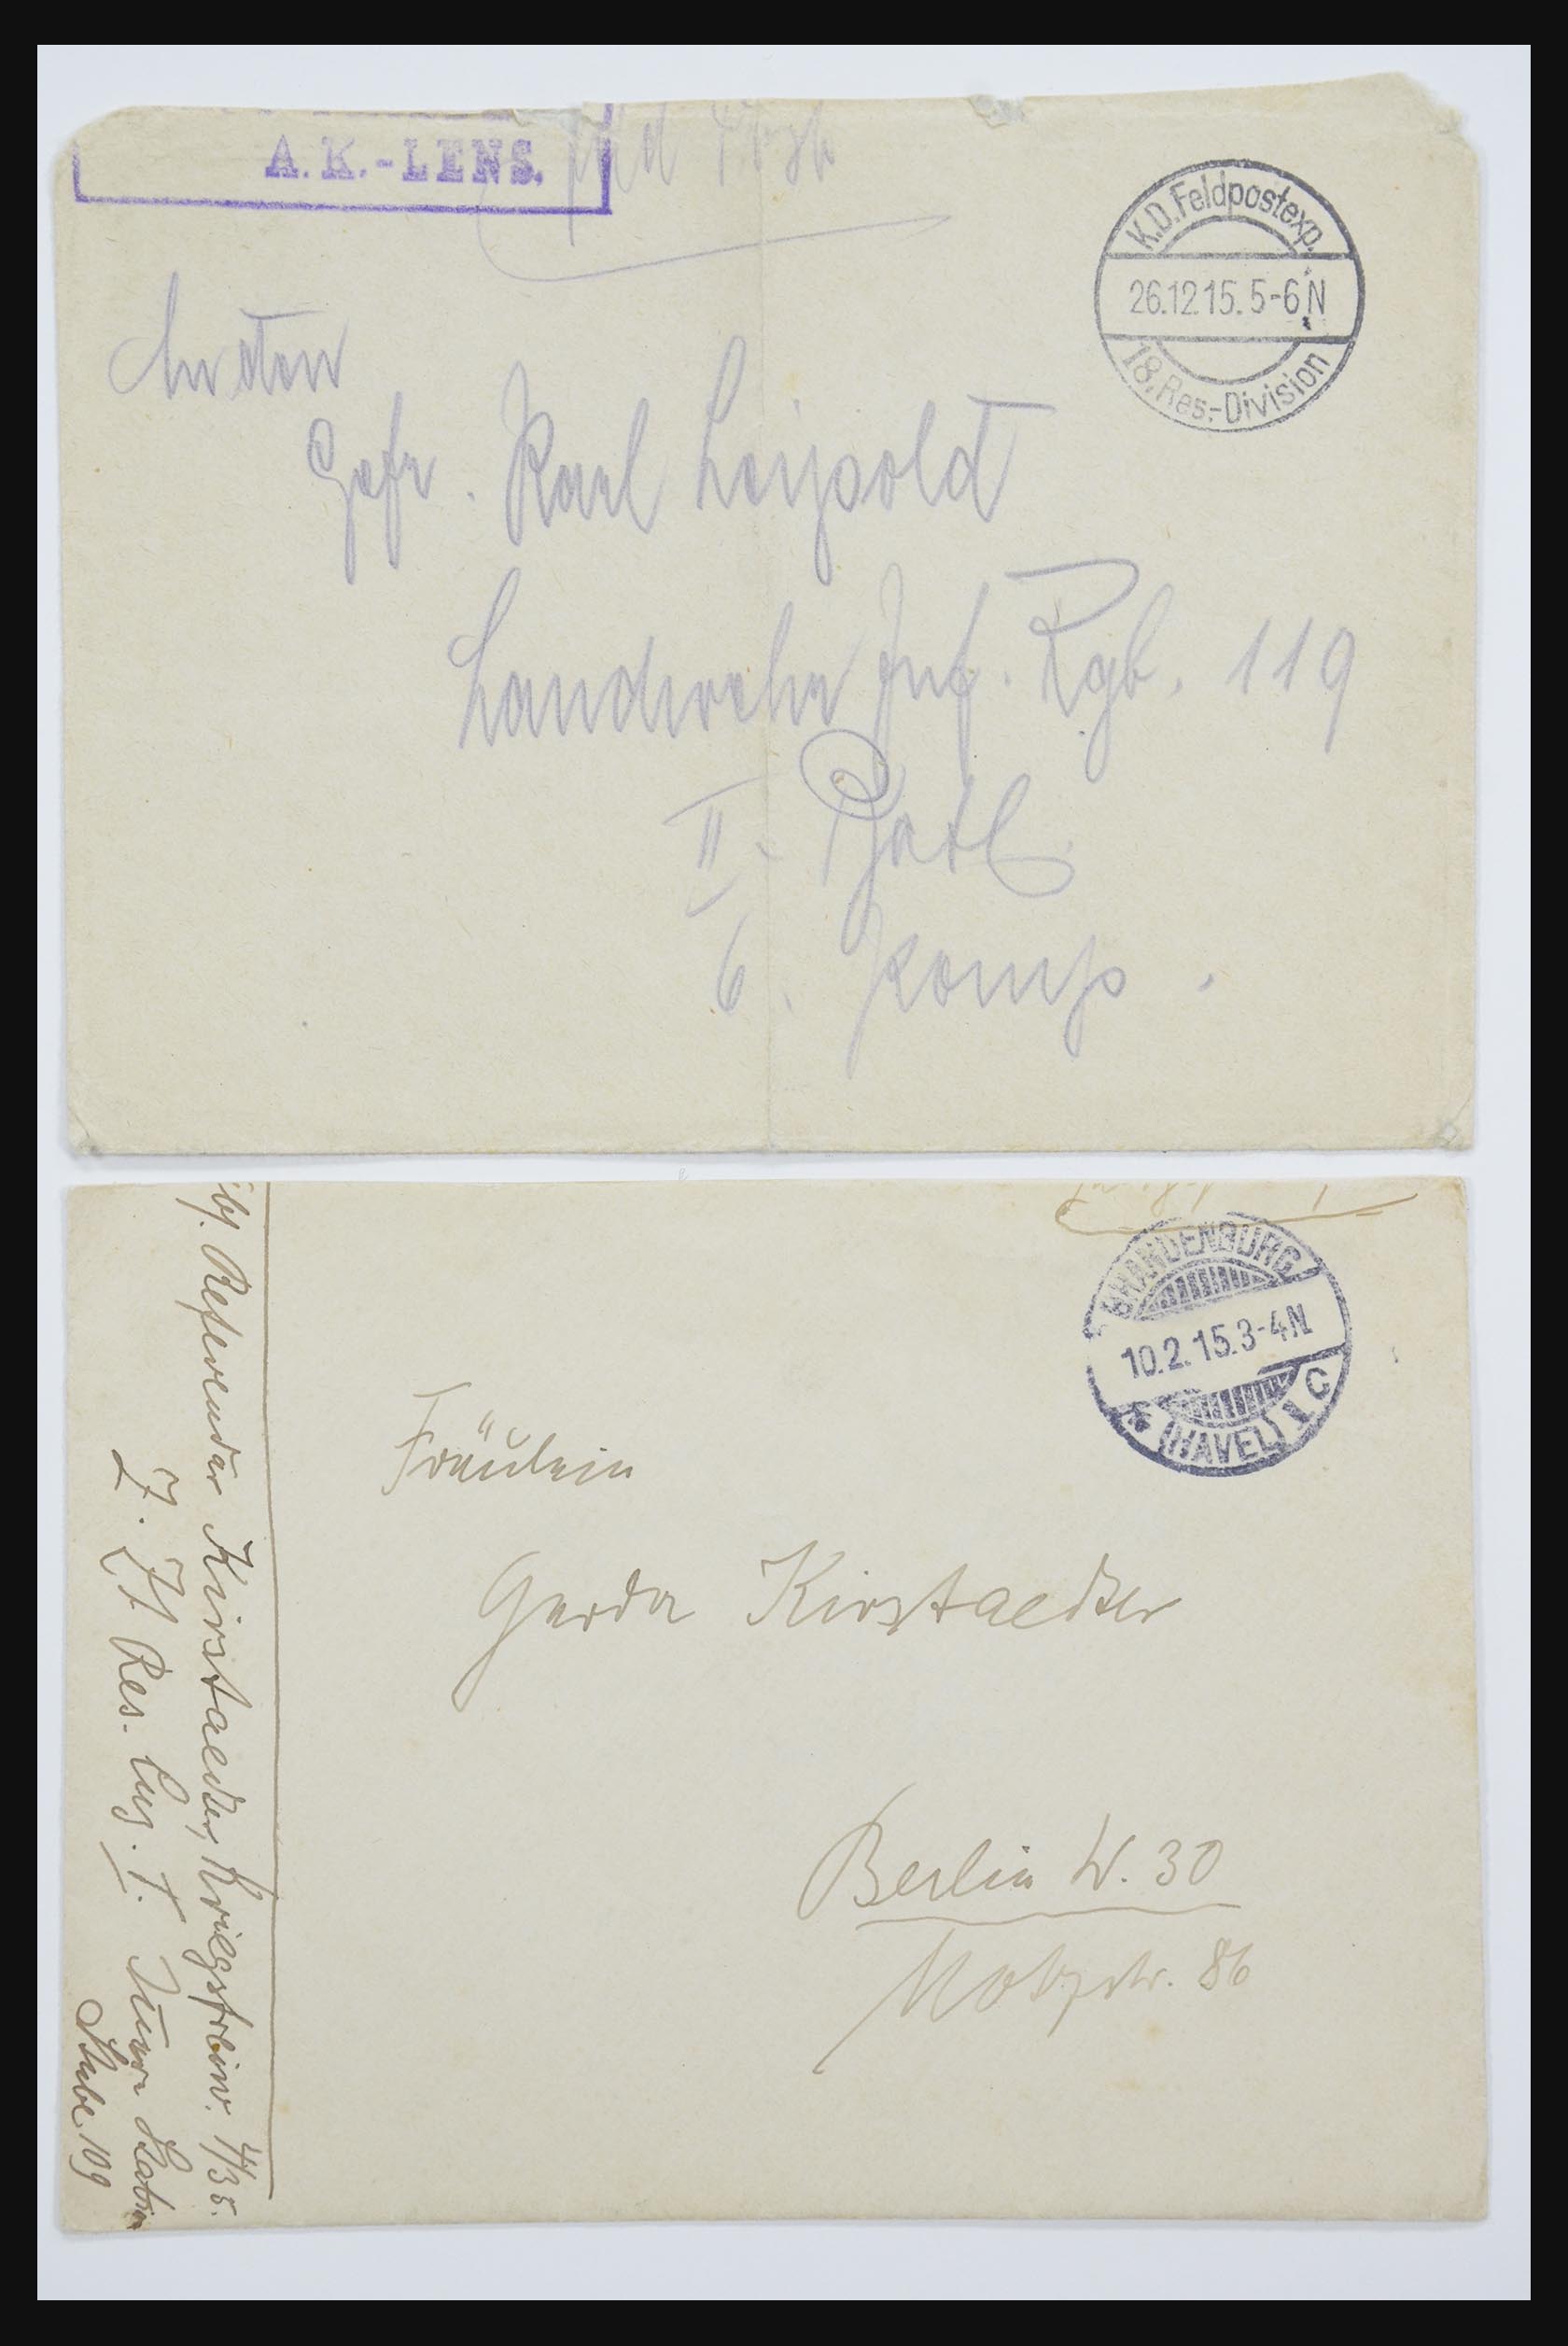 A.K.-LENS.
K.D.Feldpostexp.
26.12.15. 5-6 N
18. Res.-Division
An den
Gefr. Karl Leipold
Landwehr Inf. Rgt. 119
II. Batl
6. Komp.
BRANDENBURG
10.2.15. 3-4 N
* (HAVEL) 1 C
Fräulein
Gerda Kirstaedter
Berlin W. 30
Motzstr. 86
Referendar Kirstaedter, Kriegsfreiw. 4/35.
Res.
Stube 109